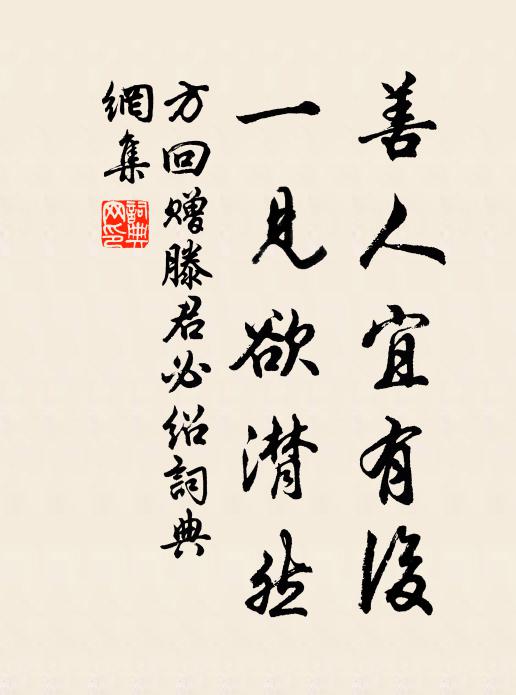 善人宜有後
一見欲潸然
方回赠滕君必绍詞典
網集
詞典
网印